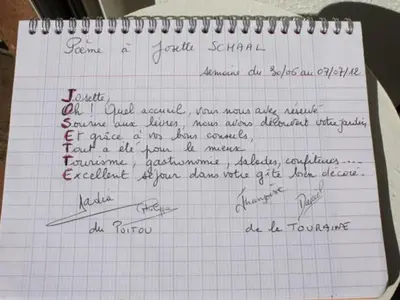 Poème à Josette SCHAAL
Semaine du 30/06 au 07/07/12
Josette,
Oh ! Quel accueil, vous nous avez réservé
Sourire aux lèvres, nous avons découvert votre jardin,
Et grâce à vos bons conseils,
Tout a été pour le mieux
Tourisme, gastronomie, balades, confitures....
Excellent séjour dans votre gîte bien décoré.
Nadia Philippe Françoise Daniel
du POITOU de la TOURAINE